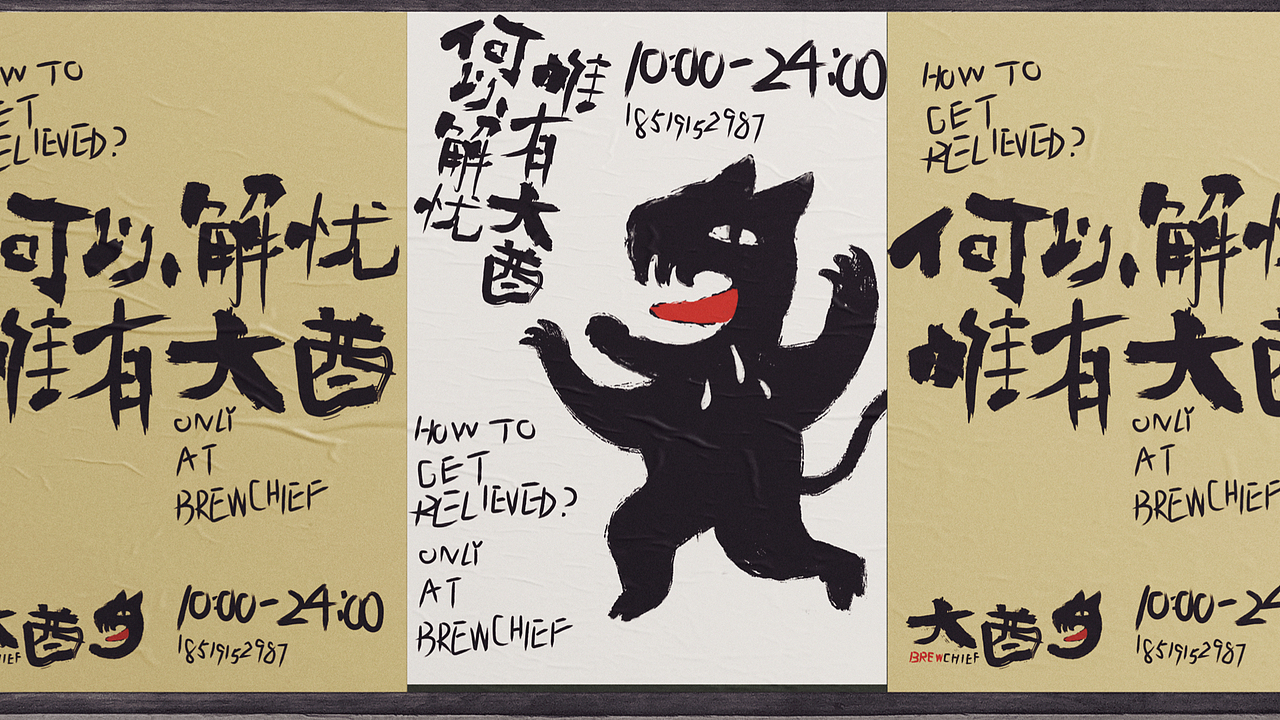 W TO
ET
ELIEVED?
何以解忧
唯有大酋
ONLY
AT
BREWCHIEF
大酋
HIEF
10:00-24:00
18519152987
何以解忧
唯有大酋
10:00-24:00
18519152987
HOW TO
GET
RELIEVED?
ONLY
AT
BREWCHIEF
HOW TO
GET
RELIEVED?
何以解
唯有大
ONLY
AT
BREWCHIEF
大酋
BREWCHIEF
10:00-24
18519152987